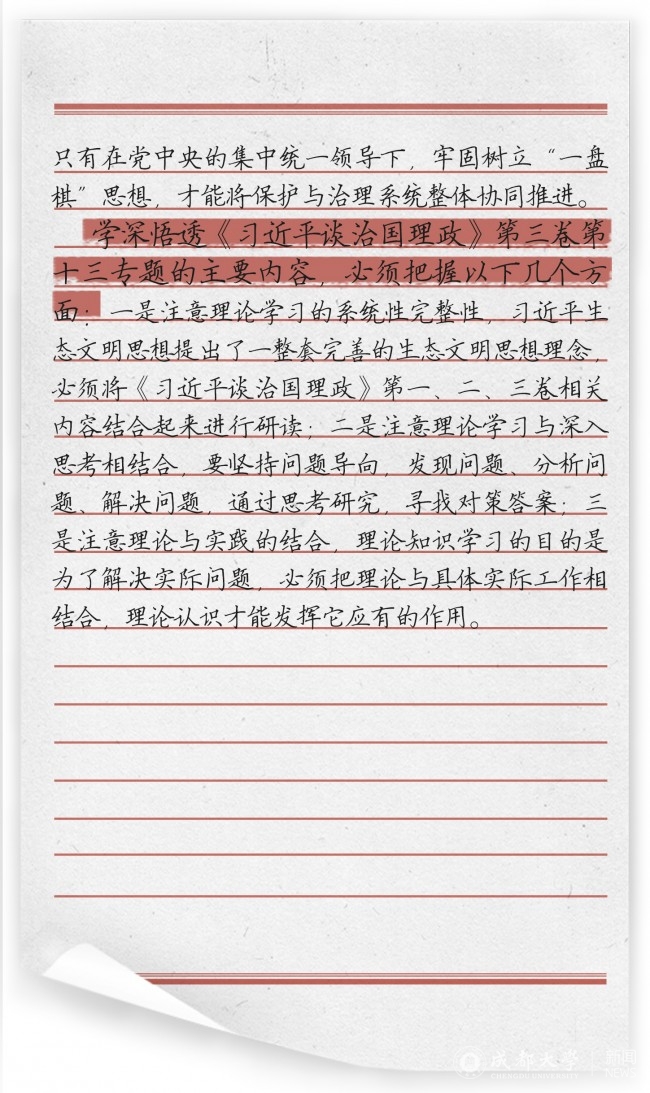 只有在党中央的集中统一领导下，牢固树立“一盘
棋”思想，才能将保护与治理系统整体协同推进。
学深悟透《习近平谈治国理政》第三卷第
十三专题的主要内容，必须把握以下几个方
面：一是注意理论学习的系统性完整性，习近平生
态文明思想提出了一整套完善的生态文明思想理念，
必须将《习近平谈治国理政》第一、二、三卷相关
内容结合起来进行研读；二是注意理论学习与深入
思考相结合，要坚持问题导向，发现问题、分析问
题、解决问题，通过思考研究，寻找对策答案；三
是注意理论与实践的结合，理论知识学习的目的是
为了解决实际问题，必须把理论与具体实际工作相
结合，理论认识才能发挥它应有的作用。
成都大学 新闻
CHENGDU UNIVERSITY NEWS